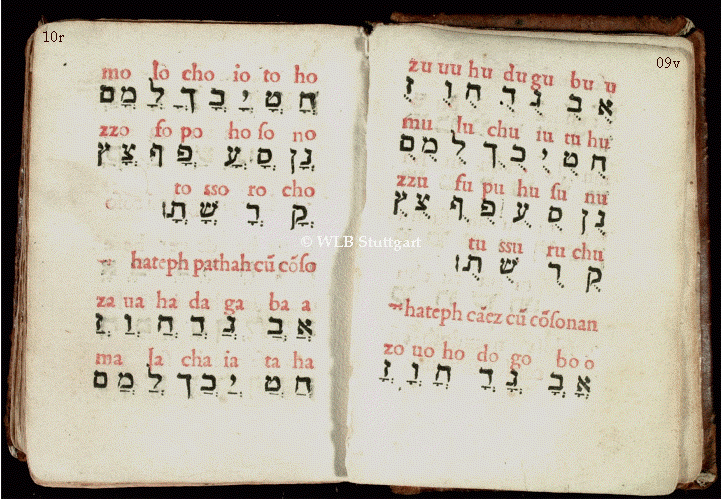 09v
zu uu hu du gu bu u
אֻ בֻ גֻ דֻ הֻ וֻ זֻ
mu lu chu iu tu hu
חֻ טֻ יֻ כֻך לֻ מֻם
zzu fu pu hu su nu
נֻן סֻ עֻ פֻ ף צֻץ
tu ssu ru chu
קֻ רֻ שֻ תֻ
hateph cáez cũ cõsonan
zo uo ho do go bo o
אֳ בֳ גֳ דֳ הֳ וֳ זֳ
10r
mo lo cho io to ho
חֳ טֳ יֳ כֳך לֳ מֳם
zzo fo po ho so no
נֳן סֳ עֳ פֳ ף צֳץ
to sso ro cho
קֳ רֳ שֳ תֳ
hateph pathah cũ cõso
za ua ha da ga ba a
אֲ בֲ גֲ דֲ הֲ וֲ זֲ
ma la cha ia ta ha
חֲ טֲ יֲ כֲך לֲ מֲם
© WLB Stuttgart